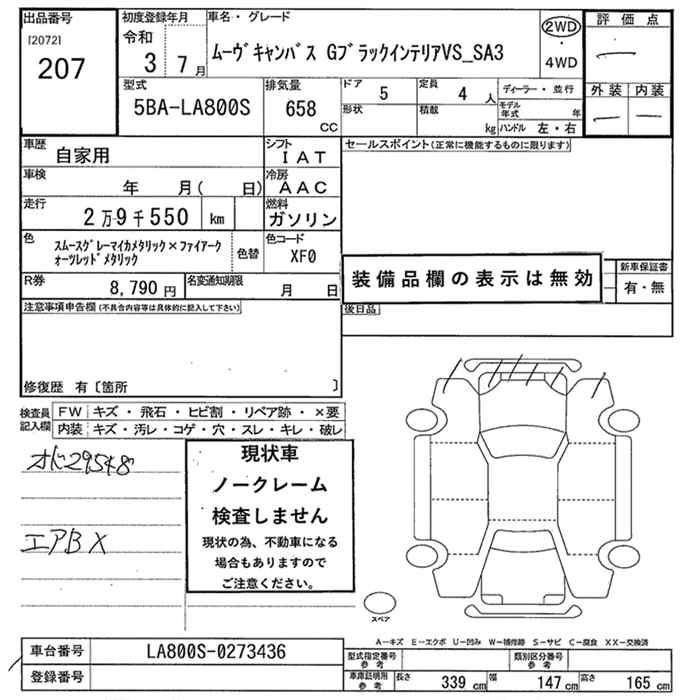 出品番号
[2072]
207
初度登録年月
令和
3 7月
車名・グレード
ムーヴキャンバス GブラックインテリアVS_SA3
2WD
・
4WD
評価点
外装 内装
型式
5BA-LA800S
排気量
658
CC
ドア
5
定員
4 人
ディーラー・並行
形状
積載
kg
モデル年式 年
ハンドル 左・右
車歴
自家用
シフト
IAT
セールスポイント(正常に機能するものに限ります)
車検
年 月( 日)
冷房
AAC
走行
2万9千550 km
燃料
ガソリン
色
スムースグレーマイカメタリック×ファイアークォーツレッドメタリック
色替
色コード
XF0
装備品欄の表示は無効
新車保証書
有・無
R券
8,790円
名変通知期限
月 日
後日品
注意事項申告欄(不具合内容等は具体的に記入して下さい)
修復歴 有〔箇所 〕
検査員記入欄
FW キズ・飛石・ヒビ割・リペア跡・×要
内装 キズ・汚レ・コゲ・穴・スレ・キレ・破レ
オド29548
エアB X
現状車
ノークレーム
検査しません
現状の為、不動車になる
場合もありますので
ご注意ください。
スペア
A-キズ E-エクボ U-凹み W-補修跡 S-サビ C-腐食 XX-交換済
車台番号
LA800S-0273436
登録番号
型式指定番号参考
類別区分番号参考
車庫証明用参考
長さ 339 cm
幅 147 cm
高さ 165 cm